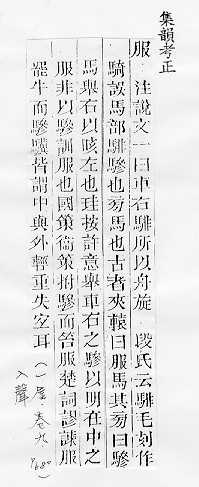 集韻考正
服 注說文一曰車右騑所以舟旋 段氏云騑毛刻作
騎誤馬部騑驂也㫄馬也古者夾轅曰服馬其㫄曰驂
馬舉右以晐左也珪按許意舉車右之驂以明在中之
服非以驂訓服也國策衞策拊驂而笞服楚詞謬諫服
罷牛而驂驥皆謂中與外輕重失宜耳（一屋 卷九
入聲